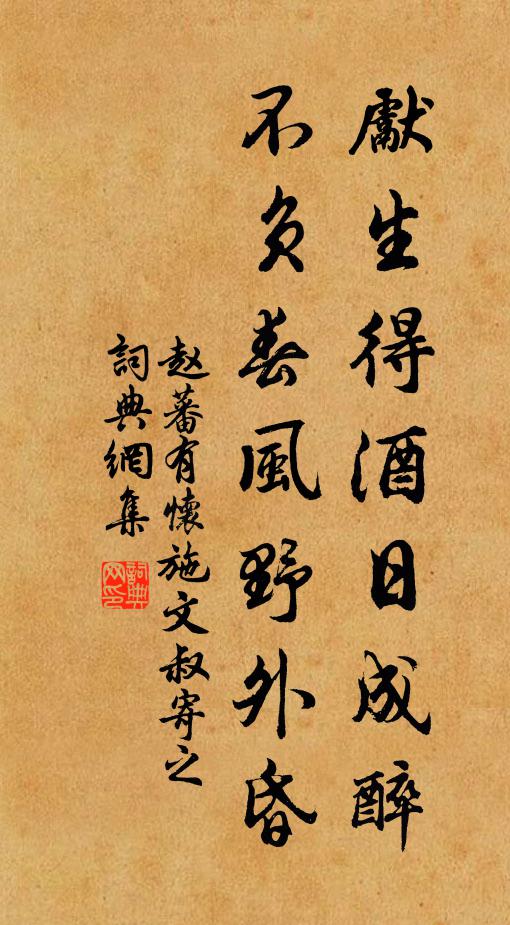 獻生得酒日成醉
不负春風野外昏
赵蕃有懷施文叔寄之
詞典網集
詞典网印